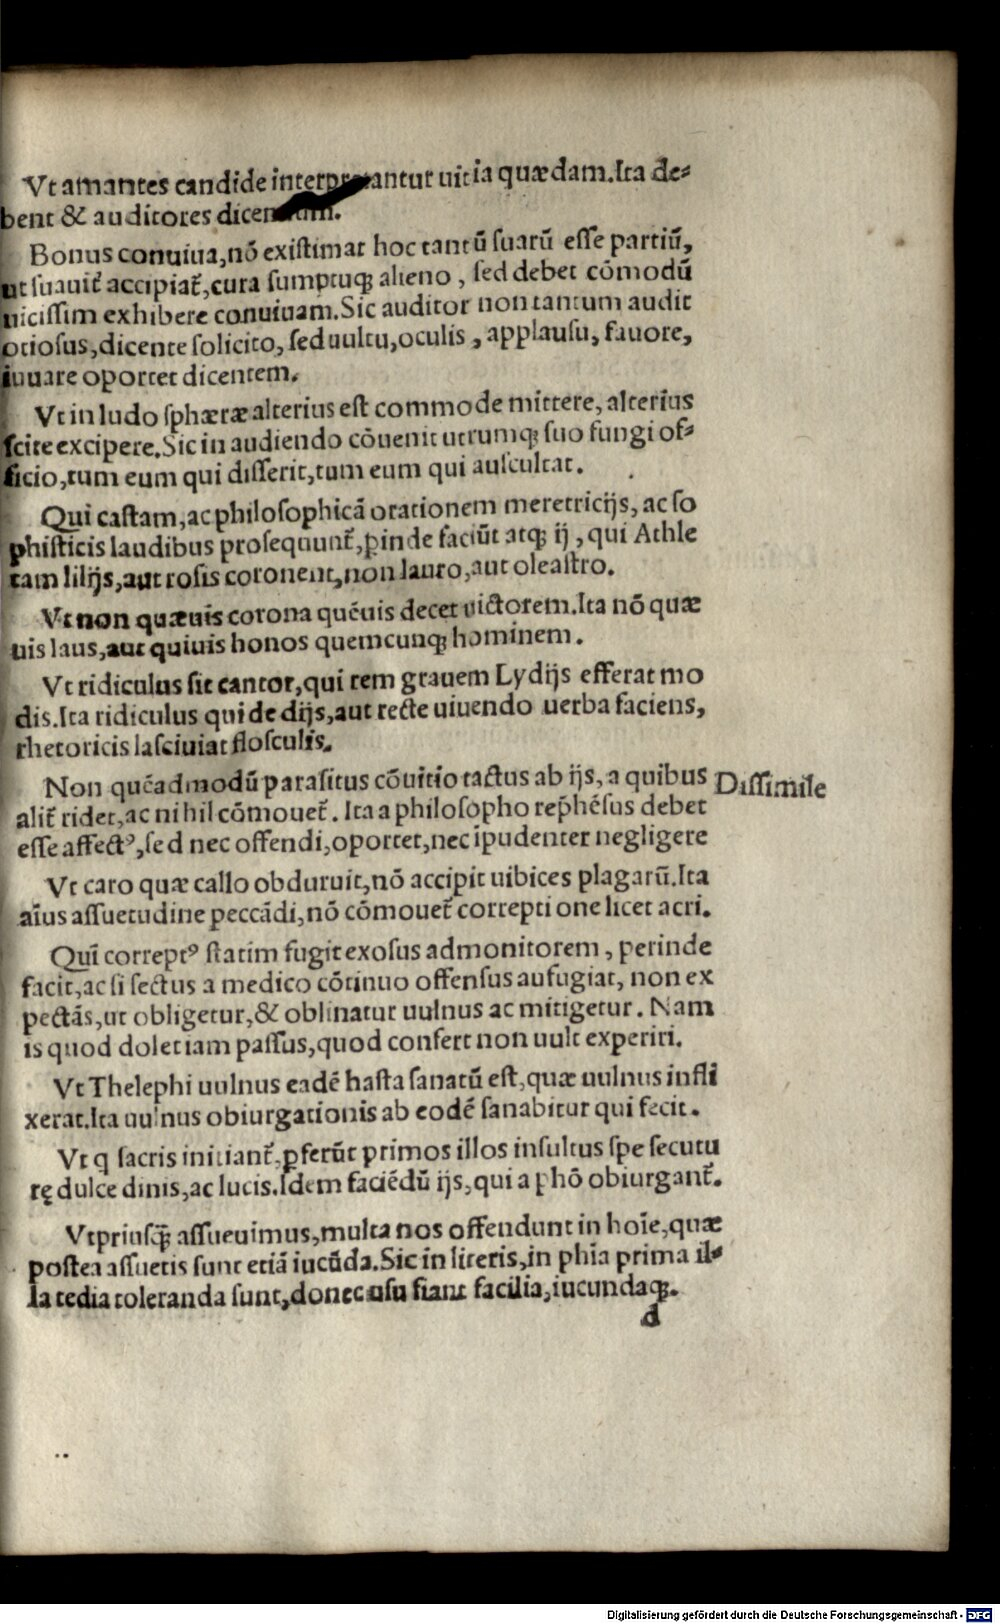 Vt amantes candide interpretantur uitia quædam. Ita de-
bent & auditores dicentium.
Bonus conuiua, nō existimat hoc tantū suarū esse partiū,
ut suauit᷑ accipiat᷑, cura sumptuq; alieno, sed debet cōmodū
uicissim exhibere conuiuam. Sic auditor non tantum audit
otiosus, dicente solicito, sed uultu, oculis, applausu, fauore,
iuuare oportet dicentem.
Vt in ludo sphæræ alterius est commode mittere, alterius
scite excipere. Sic in audiendo cōuenit utrumq; suo fungi of-
ficio, tum eum qui disserit, tum eum qui auscultat.
Qui castam, ac philosophicā orationem meretricijs, ac so
phisticis laudibus prosequunt᷑, ꝑinde faciūt atq; ij, qui Athle
tam lilijs, aut rosis coronent, non lauro, aut oleastro.
Vt non quæuis corona quēuis decet uictorem. Ita nō quæ
uis laus, aut quiuis honos quemcunq; hominem.
Vt ridiculus sit cantor, qui rem grauem Lydijs efferat mo
dis. Ita ridiculus qui de dijs, aut recte uiuendo uerba faciens,
rhetoricis lasciuiat flosculis.
Non quēadmodū parasitus cōuitio tactus ab ijs, a quibus
Dissimile
alit᷑ ridet, ac nihil cōmouet᷑. Ita a philosopho rep̄hēsus debet
esse affectꝰ, sed nec offendi, oportet, nec ipudenter negligere
Vt caro quæ callo obduruit, nō accipit uibices plagarū. Ita
aīus assuetudine peccādi, nō cōmouet᷑ correptione licet acri.
Quī correptꝰ statim fugit exosus admonitorem, perinde
facit, ac si sectus a medico cōtinuo offensus aufugiat, non ex
pectās, ut obligetur, & oblinatur uulnus ac mitigetur. Nam
is quod dolet iam passus, quod confert non uult experiri.
Vt Thelephi uulnus eadē hasta sanatū est, quæ uulnus infli
xerat. Ita uulnus obiurgationis ab eodē sanabitur qui fecit.
Vt q sacris initiant᷑, ꝑferūt primos illos insultus spe secutu
rę dulcedinis, ac lucis. Idem faciēdū ijs, qui a phō obiurgant᷑.
Vt priusq̄ assueuimus, multa nos offendunt in hoīe, quæ
postea assuetis sunt etiā iucūda. Sic in literis, in phīa prima il-
la tedia toleranda sunt, donec usu fiant facilia, iucundaq;.
d
Digitalisierung gefördert durch die Deutsche Forschungsgemeinschaft - DFG